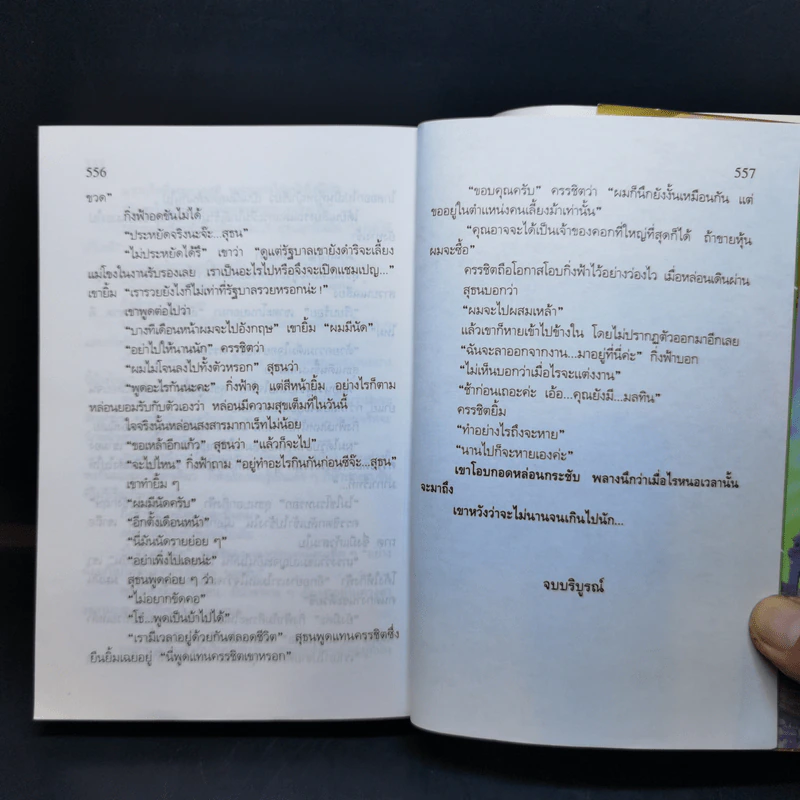 556
ขวด"
กิ่งฟ้าอดขันไม่ได้
"ประหยัดจริงนะจ๊ะ...สุธน"
"ไม่ประหยัดได้รึ" เขาว่า "ดูแต่รัฐบาลเขายังดำริจะเลี้ยง
แม่โขงในงานรับรองเลย เราเป็นอะไรไปหรือจึงจะเปิดแชมเปญ..."
เขายิ้ม "เรารวยยังไงก็ไม่เท่าที่รัฐบาลรวยหรอกน่ะ!"
เขาพูดต่อไปว่า
"บางทีเดือนหน้าผมจะไปอังกฤษ" เขายิ้ม "ผมมีนัด"
"อย่าไปให้นานนัก" ครรชิตว่า
"ผมไม่โจนลงไปทั้งตัวหรอก" สุธนว่า
"พูดอะไรกันนะคะ" กิ่งฟ้าดุ แต่สีหน้ายิ้ม อย่างไรก็ตาม
หล่อนยอมรับกับตัวเองว่า หล่อนมีความสุขเต็มที่ในวันนี้
ใจจริงนั้นหล่อนสงสารมากาเร็ทไม่น้อย
"ขอเหล้าอีกแก้ว" สุธนว่า "แล้วก็จะไป"
"จะไปไหน" กิ่งฟ้าถาม "อยู่ทำอะไรกินกันก่อนซีจ๊ะ...สุธน"
เขาทำยิ้ม ๆ
"ผมมีนัดครับ"
"อีกตั้งเดือนหน้า"
"นี่มันนัดรายย่อย ๆ"
"อย่าเพิ่งไปเลยน่ะ"
สุธนพูดค่อย ๆ ว่า
"ไม่อยากขัดคอ"
"โธ่...พูดเป็นบ้าไปได้"
"เรามีเวลาอยู่ด้วยกันตลอดชีวิต" สุธนพูดแทนครรชิตซึ่ง
ยืนยิ้มเฉยอยู่ "นี่พูดแทนครรชิตเขาหรอก"
557
"ขอบคุณครับ" ครรชิตว่า "ผมก็นึกยังงั้นเหมือนกัน แต่
ขออยู่ในตำแหน่งคนเลี้ยงม้าเท่านั้น"
"คุณอาจจะได้เป็นเจ้าของคอกที่ใหญ่ที่สุดก็ได้ ถ้าขายหุ้น
ผมจะซื้อ"
ครรชิตถือโอกาสโอบกิ่งฟ้าไว้อย่างว่องไว เมื่อหล่อนเดินผ่าน
สุธนบอกว่า
"ผมจะไปผสมเหล้า"
แล้วเขาก็หายเข้าไปข้างใน โดยไม่ปรากฏตัวออกมาอีกเลย
"ฉันจะลาออกจากงาน...มาอยู่ที่นี่ค่ะ" กิ่งฟ้าบอก
"ไม่เห็นบอกว่าเมื่อไรจะแต่งงาน"
"ช้าก่อนเถอะค่ะ เอ้อ...คุณยังมี...มลทิน"
ครรชิตยิ้ม
"ทำอย่างไรถึงจะหาย"
"นานไปก็จะหายเองค่ะ"
เขาโอบกอดหล่อนกระชับ พลางนึกว่าเมื่อไรหนอเวลานั้น
จะมาถึง
เขาหวังว่าจะไม่นานจนเกินไปนัก...
จบบริบูรณ์